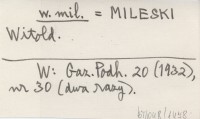 w. mil. = MILESKI
Witold.
W: Gaz. Podh. 20 (1932),
nr 30 (dwa razy).